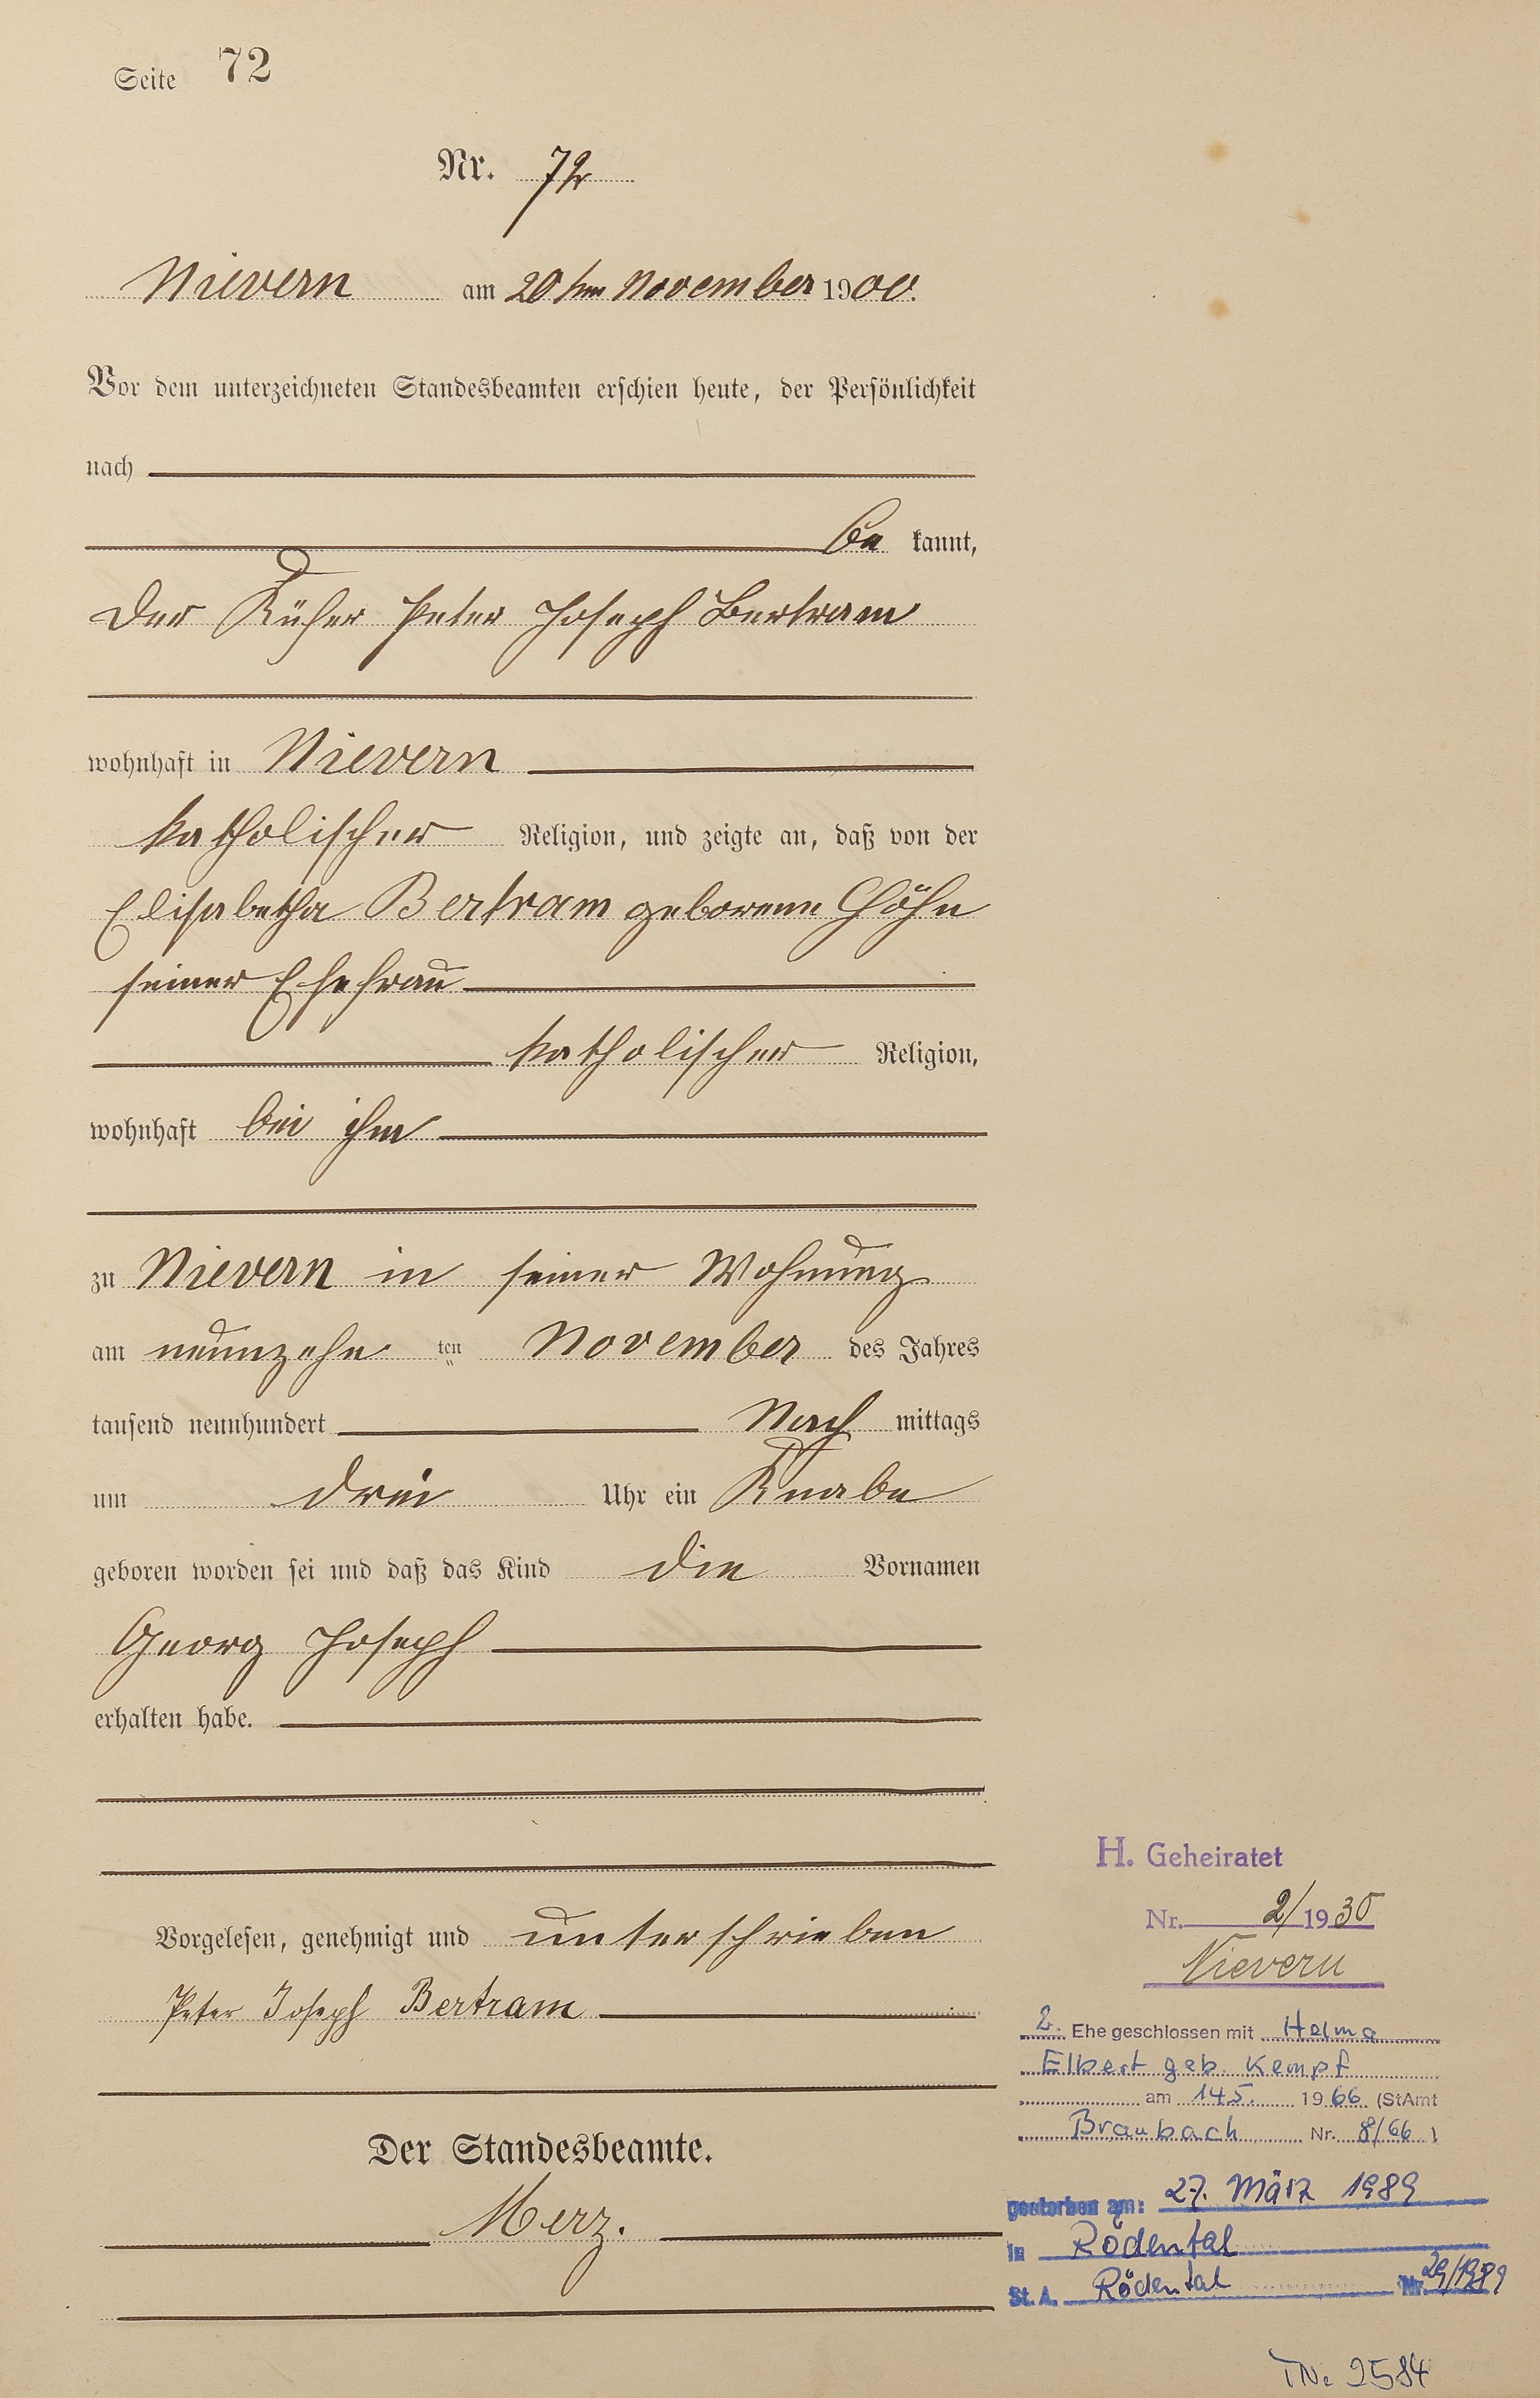 Seite 72
Nr. 72
Nievern am 20ten November 1900.
Vor dem unterzeichneten Standesbeamten erschien heute, der Persönlichkeit
nach
be kannt,
der Küfer Peter Joseph Bertram
wohnhaft in Nievern
katholischer Religion, und zeigte an, daß von der
Elisabetha Bertram geborene Höhn
seiner Ehefrau
katholischer Religion,
wohnhaft bei ihm
zu Nievern in seiner Wohnung
am neunzehn ten November des Jahres
tausend neunhundert Nach mittags
um drei Uhr ein Knabe
geboren worden sei und daß das Kind die Vornamen
Georg Joseph
erhalten habe.
Vorgelesen, genehmigt und unterschrieben
Peter Joseph Bertram
Der Standesbeamte.
Merz.
H. Geheiratet
Nr. 2/1930
Nievern
2. Ehe geschlossen mit Helma
Elbert geb. Kempf
am 14.5. 1966 (StAmt
Braubach Nr. 8/66 )
gestorben am: 27. März 1989
in Rödental
St. A. Rödental Nr. 29/1989
2584